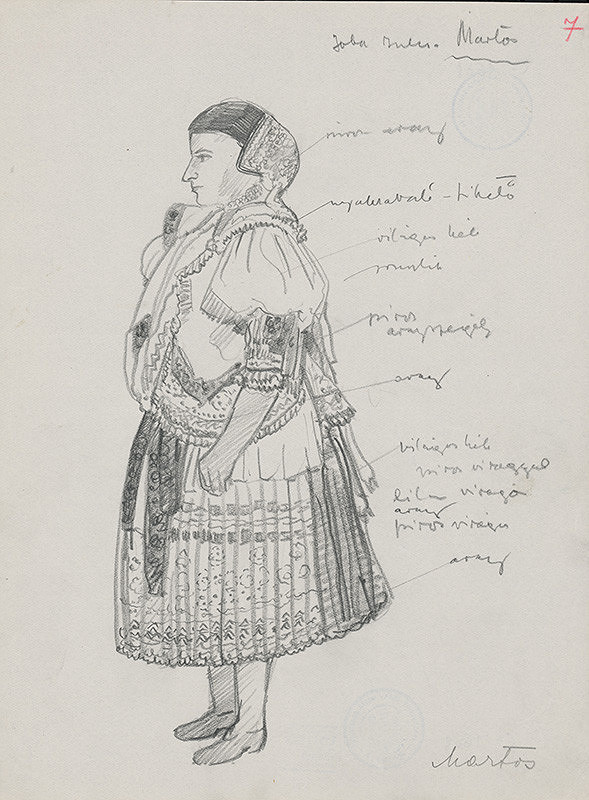 Joba Martos
7
piros arany
nyakravaló - Tihető
világos kék
piros
aranyszegély
arany
világos kék
piros virággal
lila virágú
arany
piros virágú
arany
Martos